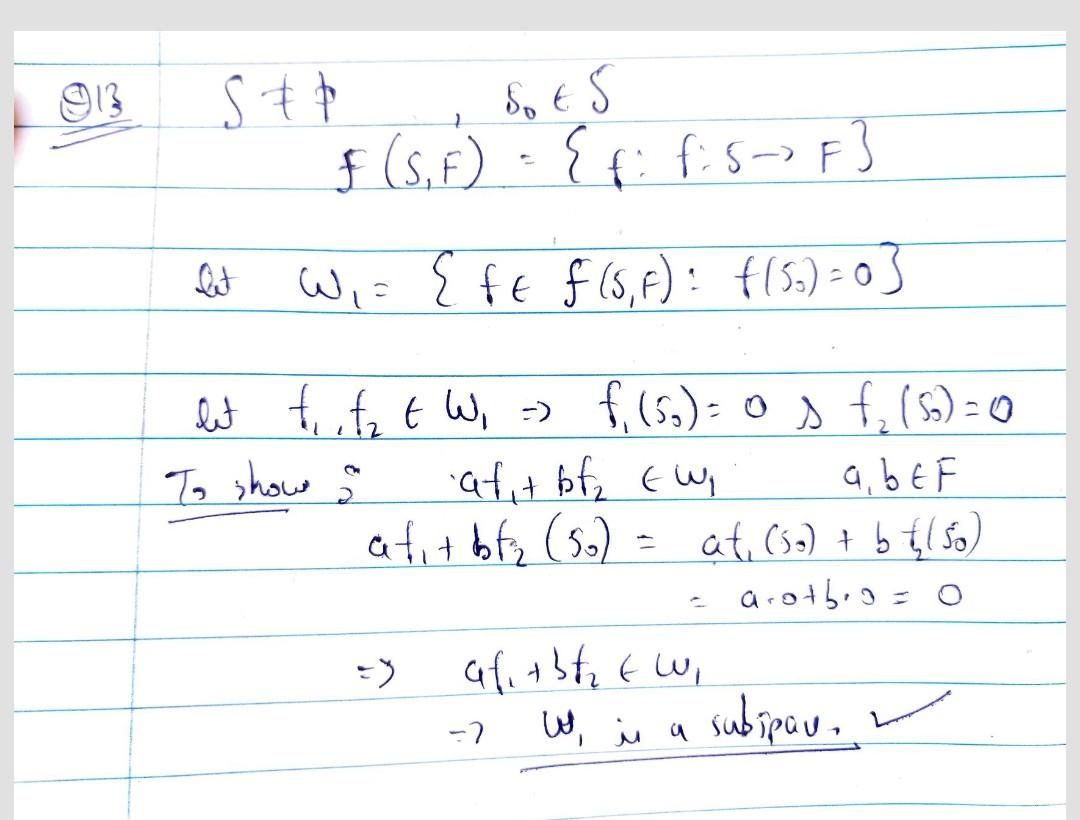 Q13 S ≠ ϕ , s₀ ∈ S
F(S,F) = { f: f: S → F }
let W₁ = { f ∈ F(S,F) : f(s₀) = 0 }
let f₁, f₂ ∈ W₁ ⇒ f₁(s₀) = 0 & f₂(s₀) = 0
To show : af₁ + bf₂ ∈ W₁ a, b ∈ F
af₁ + bf₂ (s₀) = af₁(s₀) + b f₂(s₀)
= a·0 + b·0 = 0
⇒ af₁ + bf₂ ∈ W₁
⇒ W₁ is a subspace. ✓